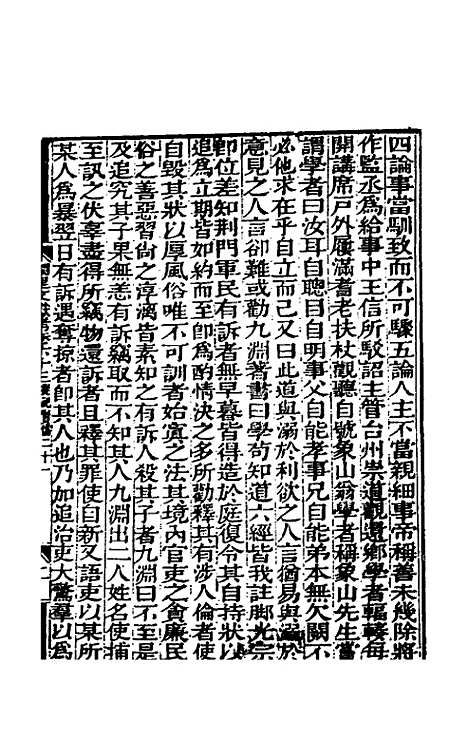 四論事當馴致而不可驟五論人主不當親細事帝稱善未幾除將
作監丞為給事中王信所駁詔主管台州崇道觀還鄉學者輻輳每
開講席戶外屨滿耆老扶杖觀聽自號象山翁學者稱象山先生嘗
謂學者曰汝耳自聰目自明事父自能孝事兄自能弟本無欠闕不
必他求在乎自立而己又曰此道與溺於利欲之人言猶易與溺於
意見之人言卻難或勸九淵著書曰學苟知道六經皆我註脚光宗
即位差知荆門軍民有訴者無早暮皆得造於庭復令其自持狀以
追為立期皆如約而至即為酌情決之多所勸釋其有涉人倫者使
自毀其狀以厚風俗唯不可訓者始寘之法其境內官吏之貪廉民
俗之善惡習尚之淳漓皆素知之有訴人殺其子者九淵曰不至是
及追究其子果無恙有訴竊取而不知其人九淵出二人姓名使捕
至訊之伏辜盡得所竊物還訴者且釋其罪使自新又語吏以某所
某人為暴翌日有訴遇奪掠者即其人也乃加追治吏大驚羣以為